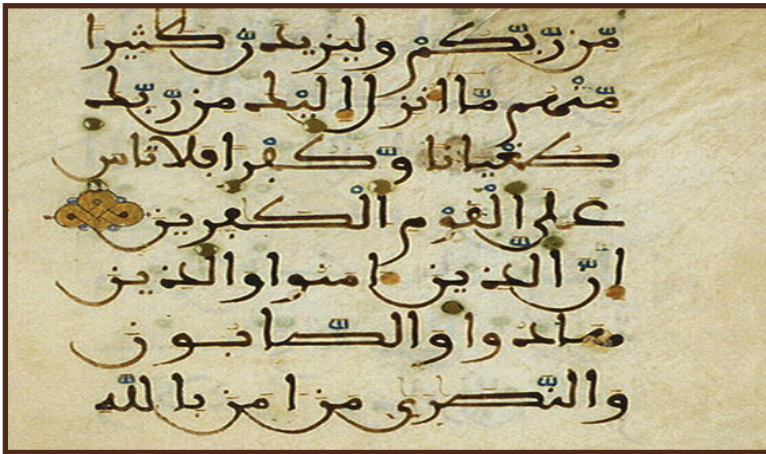 مّن رّبّكمْ وليزيدنّ كثيرا
مّنْهم مّا انزل اليْك من رّبّك
طغْيانا وّكفْرا فلا تاس
على الْقوْم الْكفرين
انّ الّذين امنوا والذين
هادوا والصّابون
والنّصرى من امن بالله